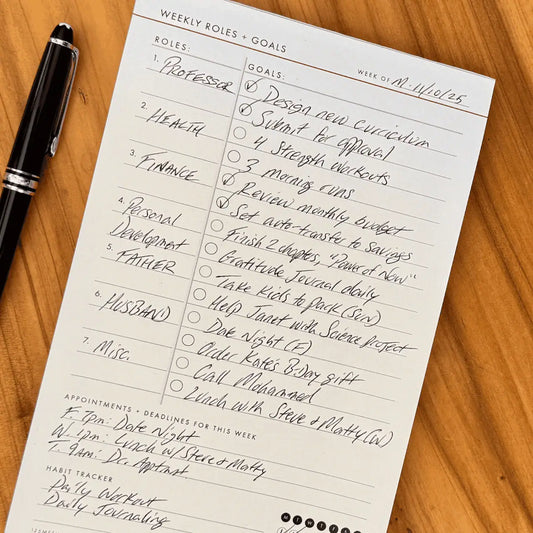 WEEKLY ROLES + GOALS
WEEK OF M. 11/10/25
ROLES:
GOALS:
1. PROFESSOR
Design new curriculum
Submit for approval
2. HEALTH
4 Strength workouts
3 morning runs
3. FINANCE
Review monthly budget
Set auto-transfer to savings
4. Personal
Development
Finish 2 chapters, "Power of Now"
Gratitude Journal daily
5. FATHER
Take kids to park (Sun)
Help Janet with Science project
6. HUSBAND
Date Night (F)
Order Kate's B-Day gift
7. Misc.
Call Mohammed
Lunch with Steve + Matty (W)
APPOINTMENTS + DEADLINES FOR THIS WEEK
F. 7pm: Date Night
W. 1pm: Lunch w/ Steve + Matty
T. 9am: Dr. Apptmt.
HABIT TRACKER
M T W T F S S
Daily Workout
Daily Journaling